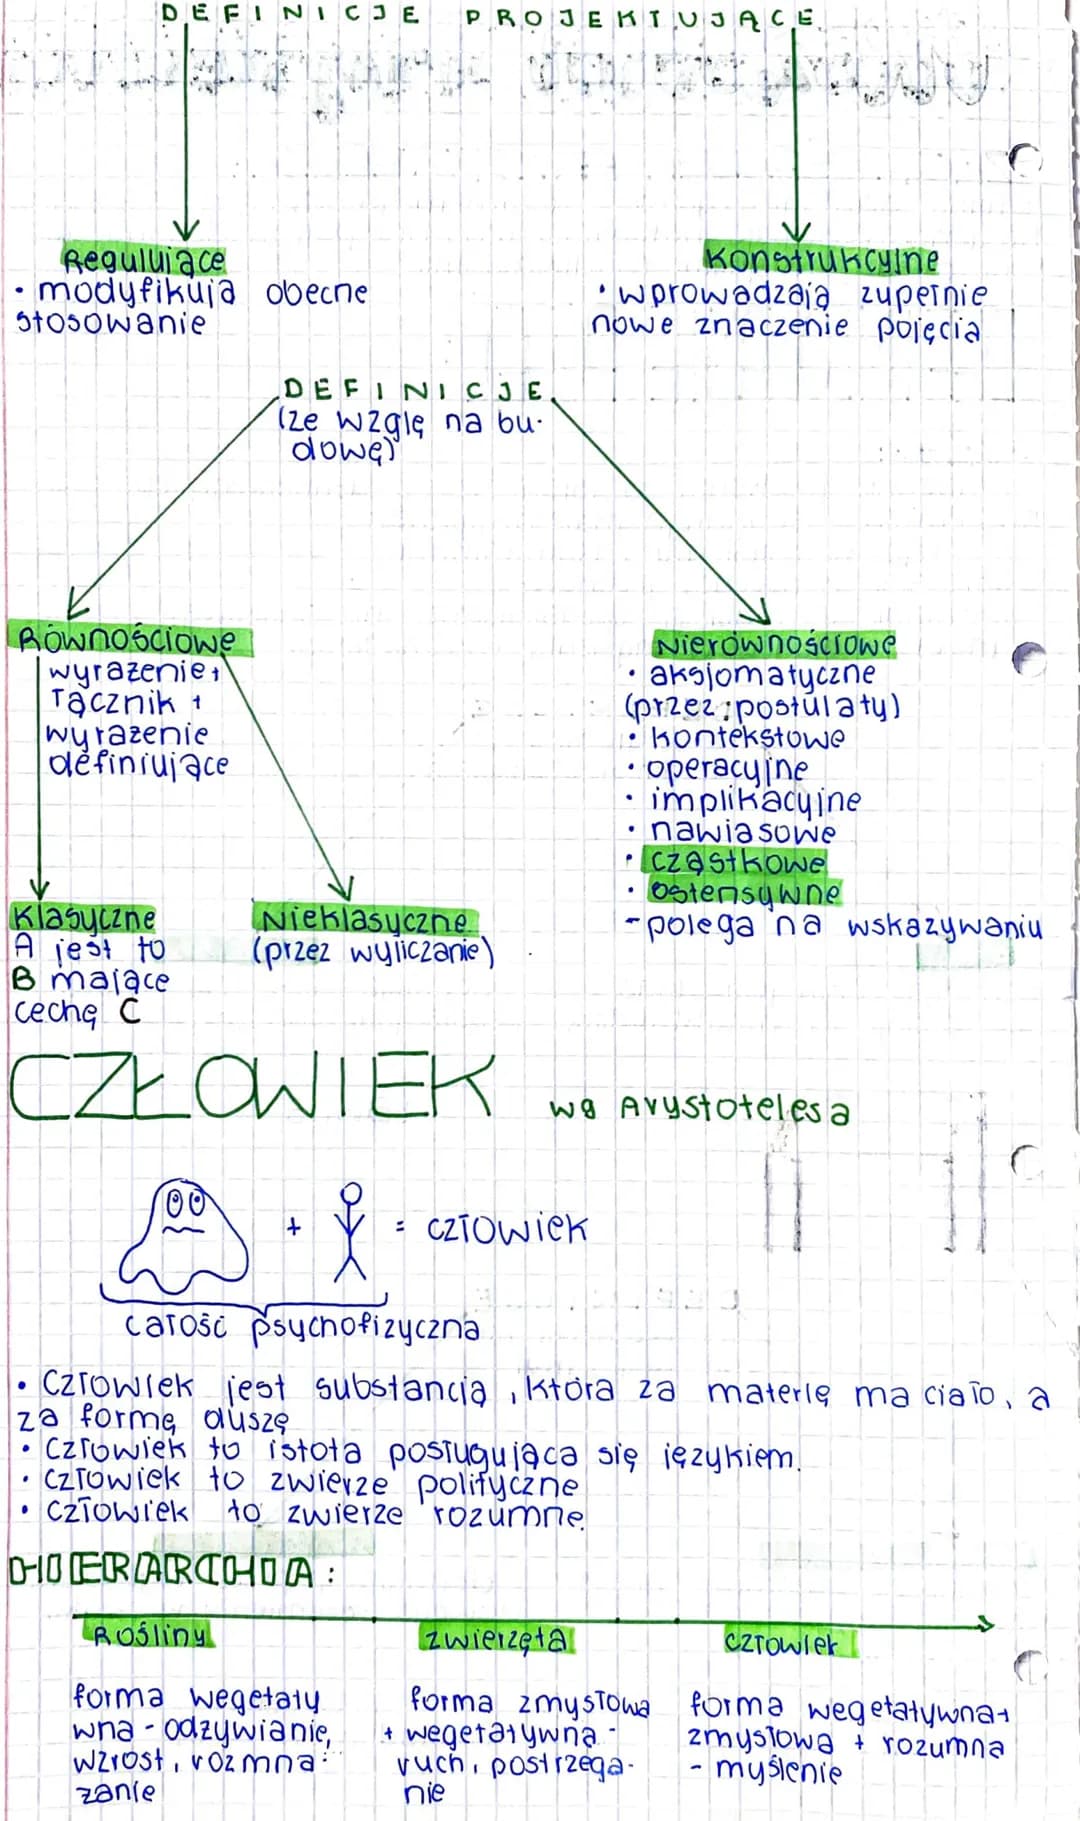 DEFINICJE PROJEKTUJĄCE
Regulujące
• modyfikują obecne
stosowanie
Konstrukcyjne
• wprowadzają zupełnie
nowe znaczenie pojęcia
DEFINICJE
(ze wzglę na bu-
dowę)
Równościowe
wyrażenie +
łącznik +
wyrażenie
definiujące
Nierównościowe
• aksjomatyczne
(przez postulaty)
• kontekstowe
• operacyjne
• implikacyjne
• nawiasowe
• cząstkowe
• ostensywne
- polega na wskazywaniu
Klasyczne
A jest to
B mające
cechę C
Nieklasyczne
(przez wyliczanie)
CZŁOWIEK wg Arystotelesa
+ = człowiek
całość psychofizyczna
• Człowiek jest substancją, która za materię ma ciało, a
za formę duszę
• Człowiek to istota posługująca się językiem.
• Człowiek to zwierze polityczne
• Człowiek to zwierze rozumne.
HIERARCHIA:
Rośliny
Zwierzęta
Człowiek
forma wegetaty
wna - odżywianie,
wzrost, rozmna-
żanie
forma zmysłowa
+ wegetatywna -
ruch, postrzega-
nie
forma wegetatywna +
zmysłowa + rozumna
- myślenie